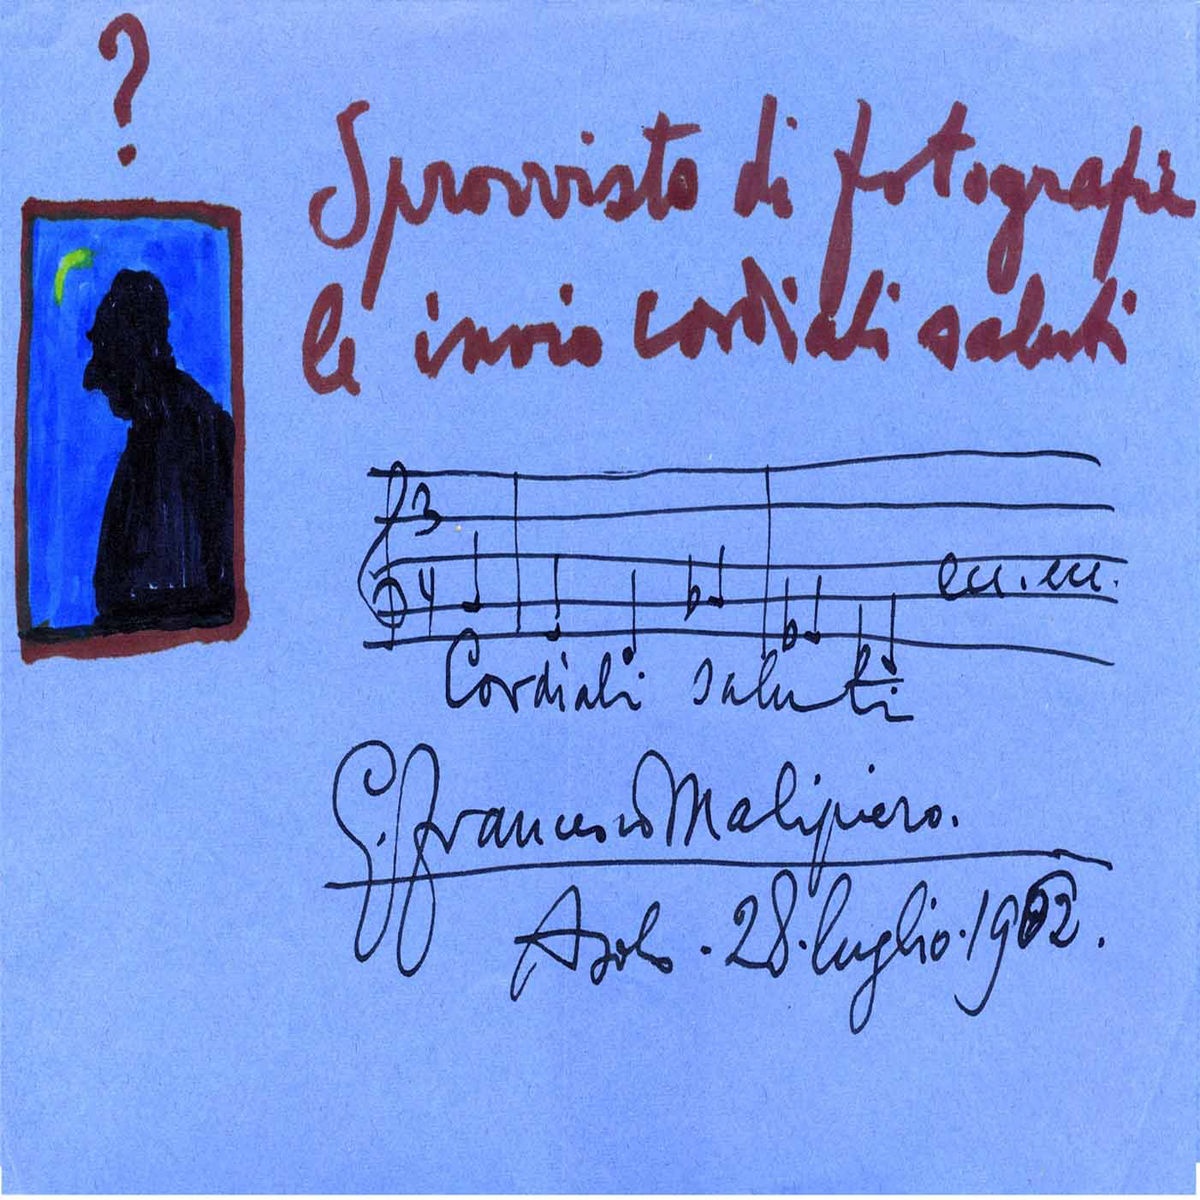 ?
Sprovvisto di fotografie
le invio cordiali saluti
3
4
ecc. ecc.
Cordiali saluti
G. Francesco Malipiero.
Asolo. 28. luglio.